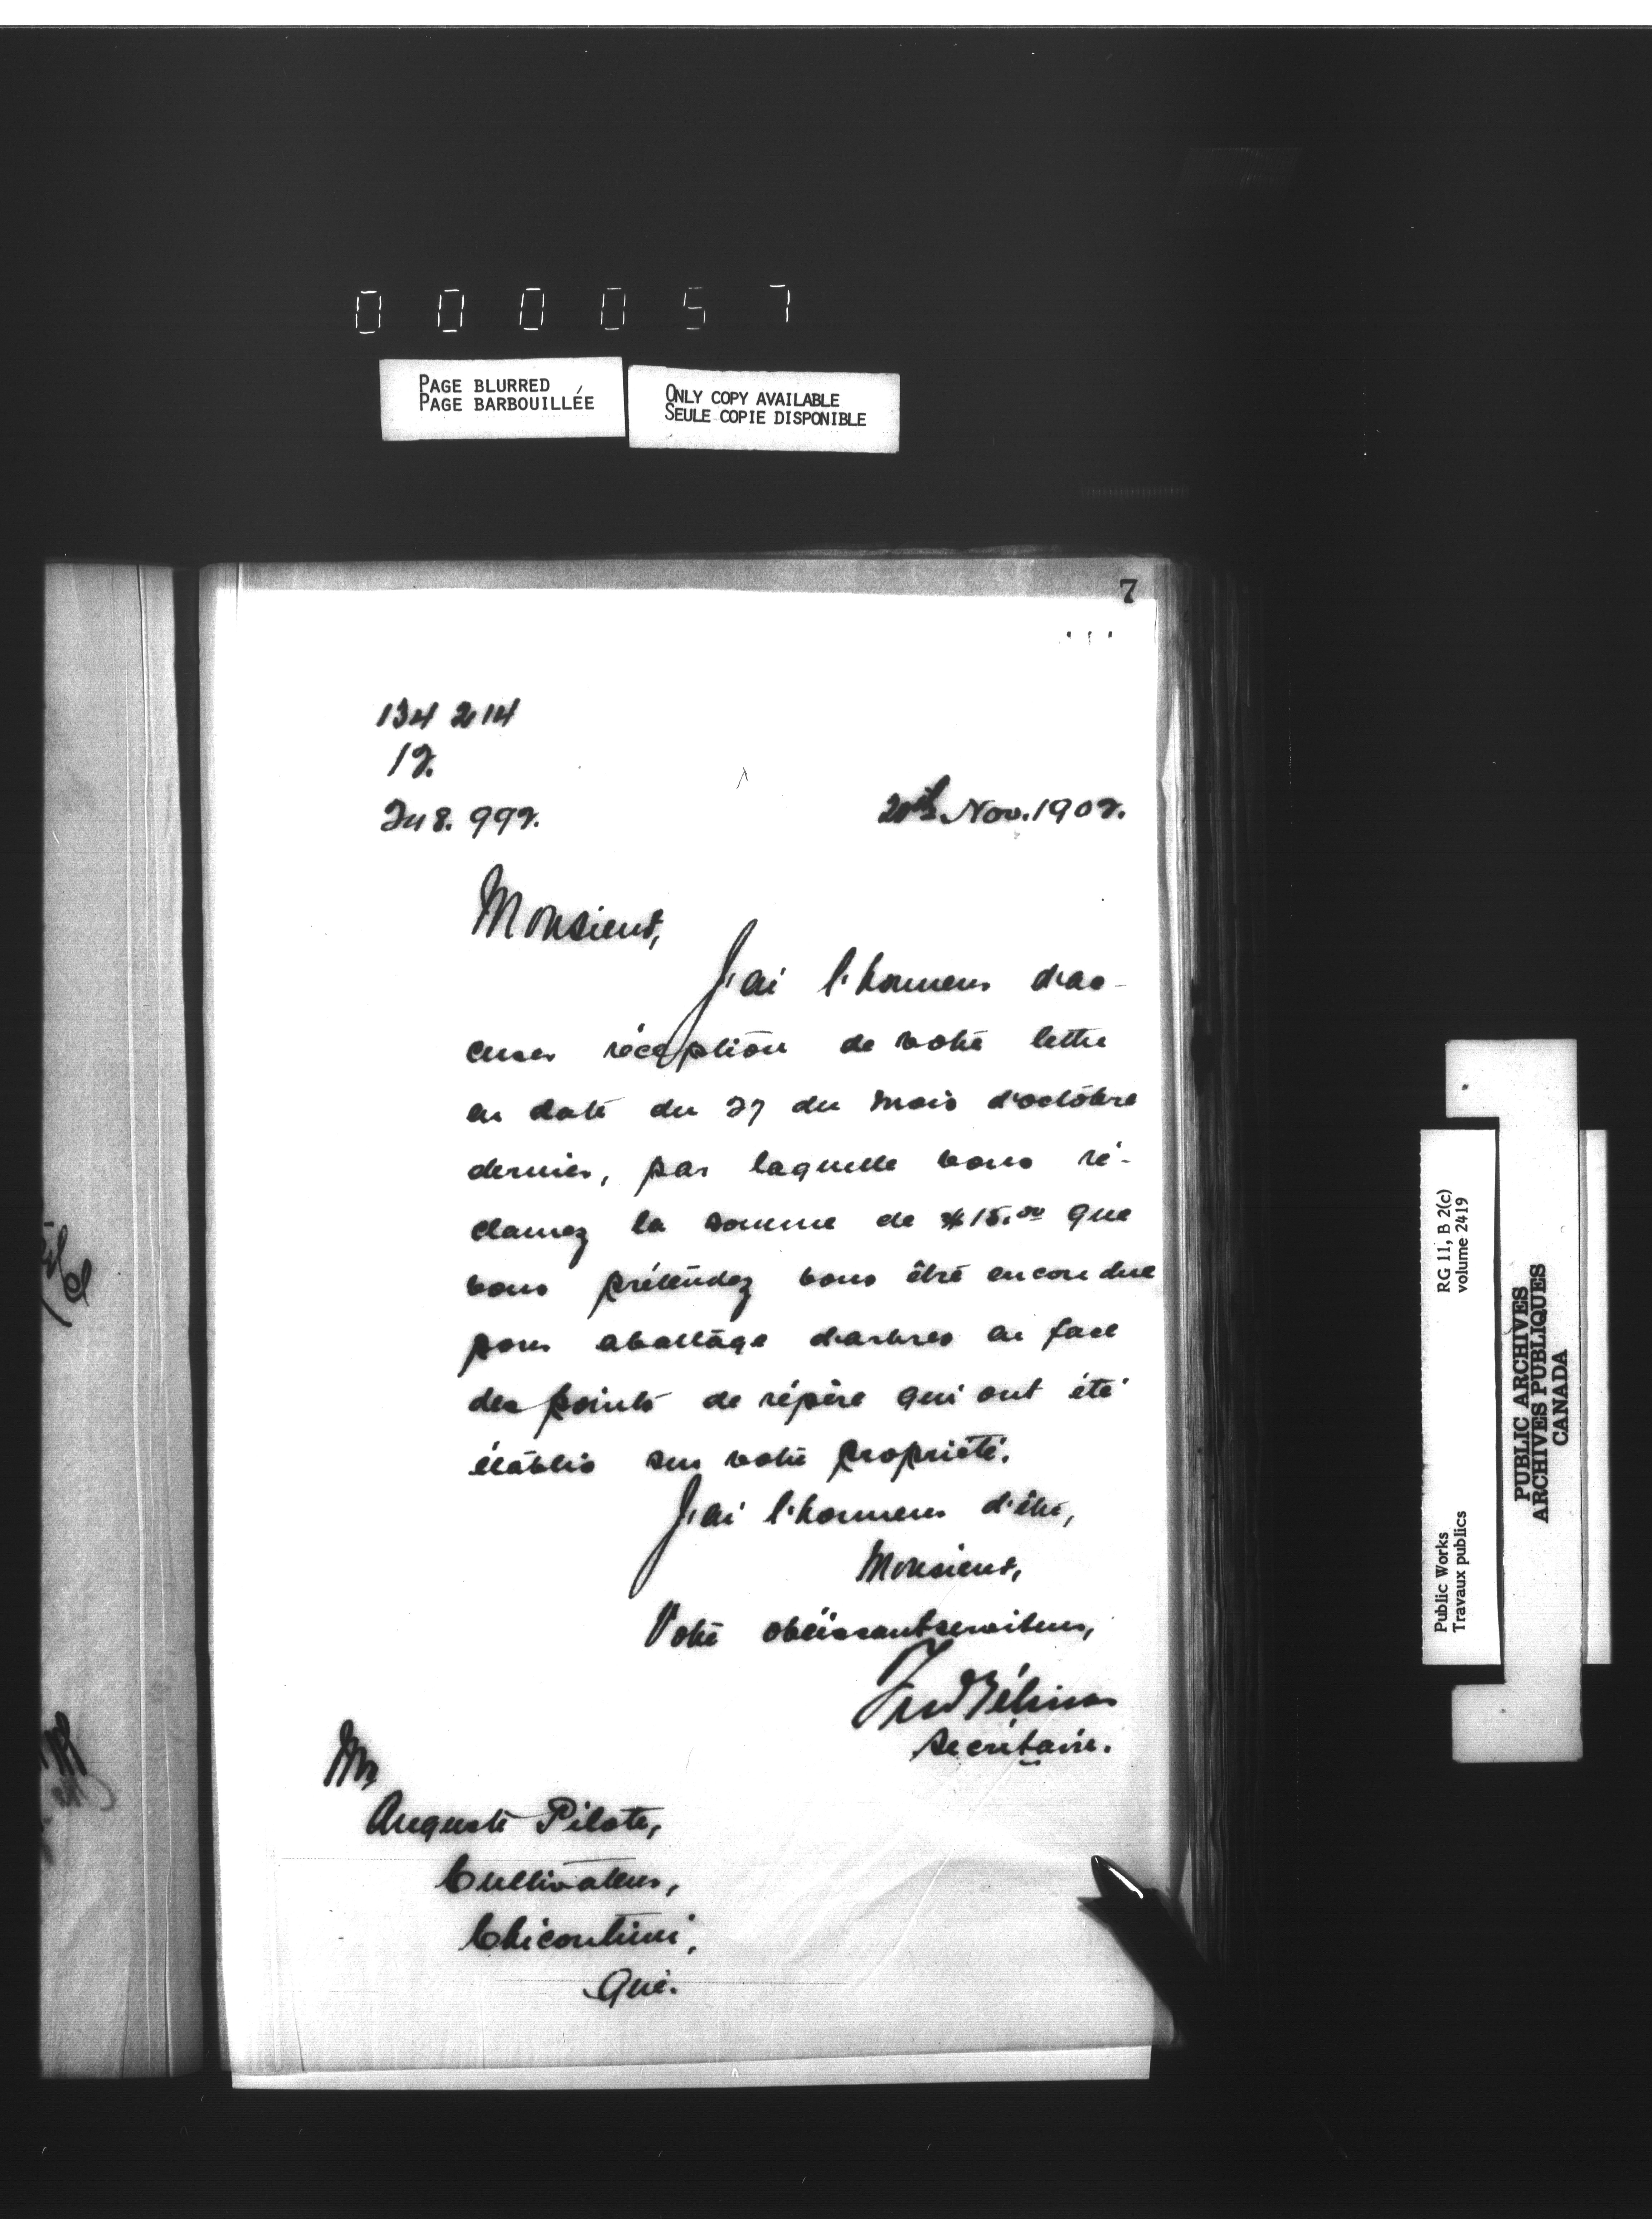 000057
PAGE BLURRED
PAGE BARBOUILLÉE
ONLY COPY AVAILABLE
SEULE COPIE DISPONIBLE
7
Nov. 1902.
Monsieur,
J'ai l'honneur d'ac-
cuser réception de votre lettre
en date du 27 du mois d'octobre
dernier, par laquelle vous ré-
clamez la somme de $15.00 que
vous prétendez vous être encore due
pour abattage d'arbres en face
des points de répère qui ont été
établis sur votre propriété.
J'ai l'honneur d'être,
Monsieur,
Votre obéissant serviteur,
Fred Gélinas
Secrétaire.
Mr
Auguste Pilote,
Cultivateur,
Chicoutimi,
Qué.
Public Works
Travaux publics
RG 11, B 2(c)
volume 2419
PUBLIC ARCHIVES
ARCHIVES PUBLIQUES
CANADA